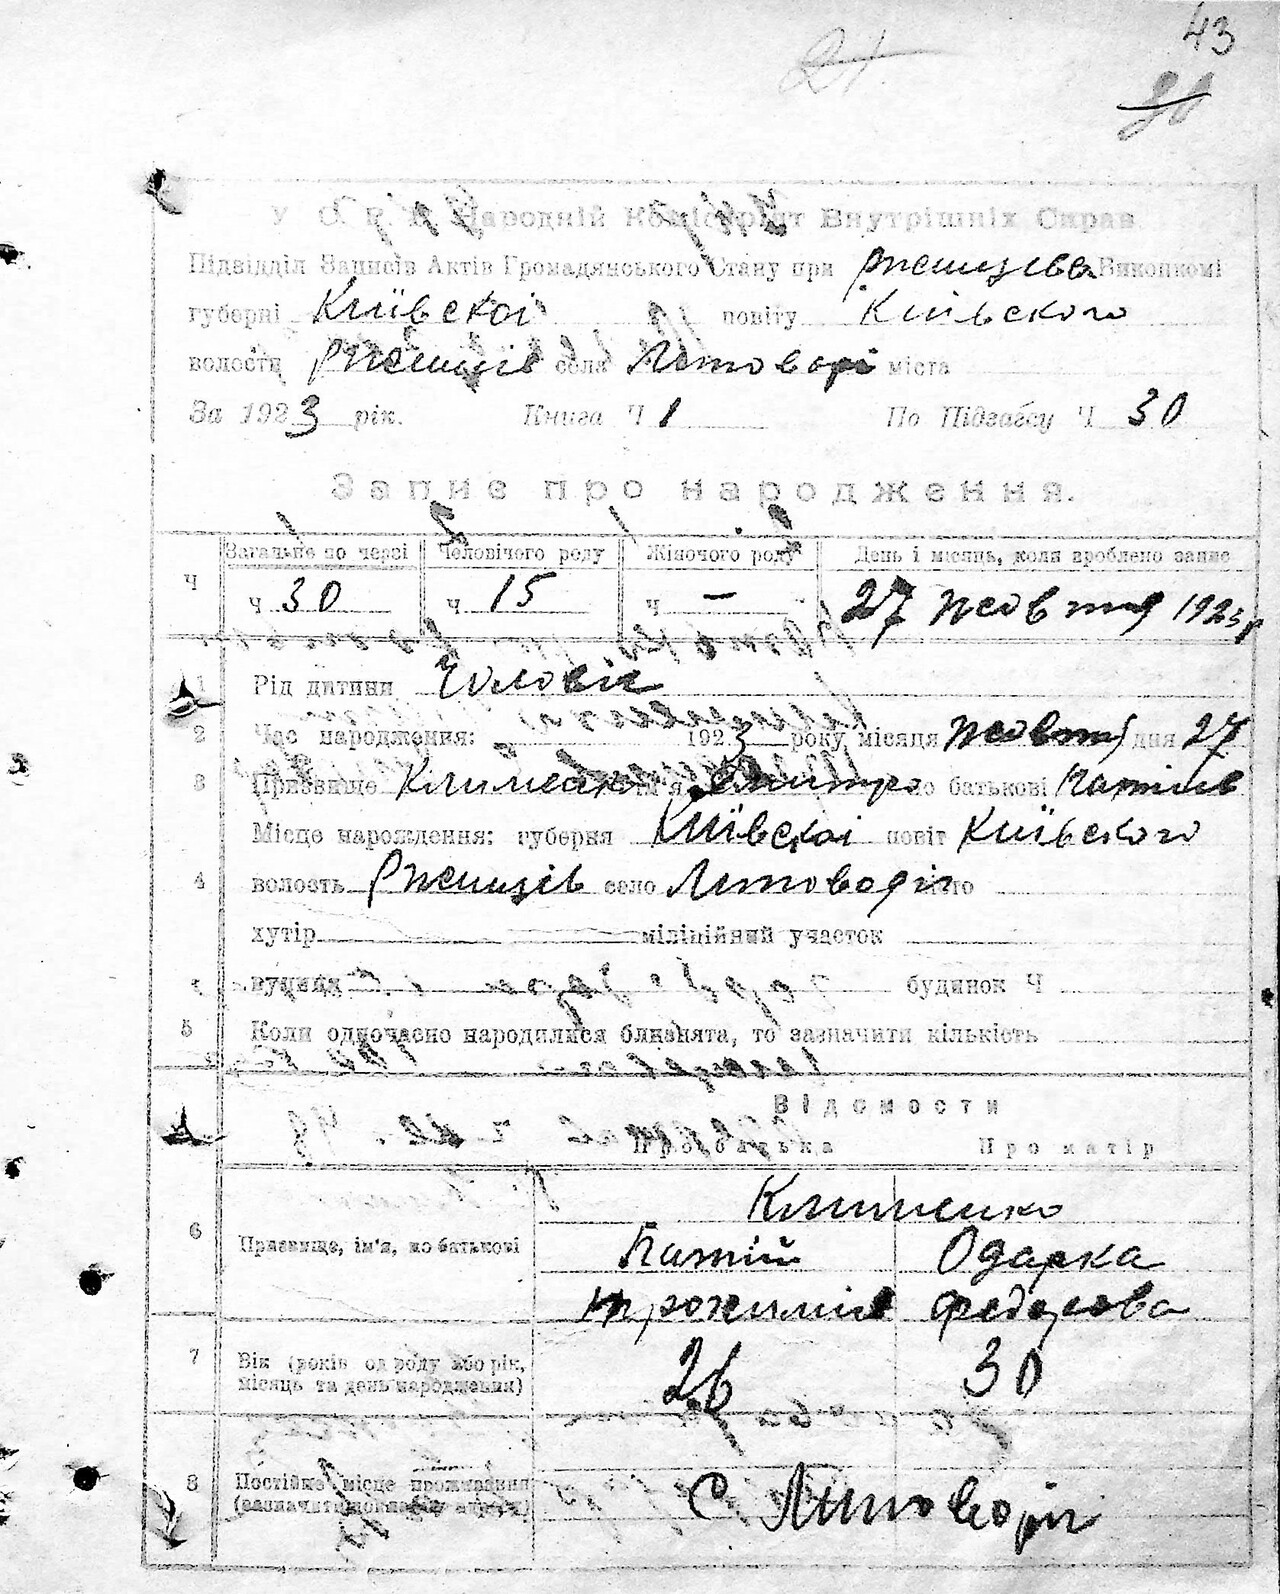 43
У С. Р. Р. Народній Комісаріят Внутрішніх Справ
Підвідділ Записів Актів Громадянського Стану при Ржищів Виконкомі
губерні Київскоі повіту Київского
волости Ржищів села міста
За 1923 рік. Книга Ч 1 По Підзагсу Ч 30
Запис про народження.
Загальне по черзі Человічого роду Жіночого роду День і місяць, коли вроблено запис
Ч ч 30 ч 15 ч — 27 жовтня 1923 р
1 Рід дитини Чоловік
2 Час народження: 1923 року місяця жовтня дня 27
3 Призвище Клименко ім'я Дмитро по батькові
Місце нарождення: губерня Київскоі повіт Київского
4 волость Ржищів село місто
хутір міліційний участок
вулиця будинок Ч
5 Коли одночасно народилися близнята, то зазначити кількість
Відомости
Про батька Про матір
Клименко
6 Призвище, ім'я, по батькові Одарка
Федорова
7 Вік (років од роду або рік, 26 30
місяць та день народження)
8 Постійне місце проживання С